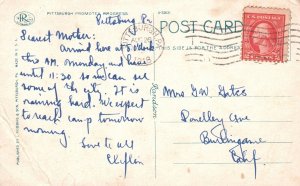 PITTSBURGH PROMOTES PROGRESS
Pittsburg Pa
POST CARD
Dearest Mother:
THIS SIDE IS FOR THE ADDRESS
Arrived here at 5 o'clock
this AM. monday and have
until 11:30 so we can see
some of the city. It is
raining hard. We expect
to reach camp tomorrow
morning.
Love to all
Clifton
Mrs G.W. Gates
Donelley Ave
Burlingame
Calif.